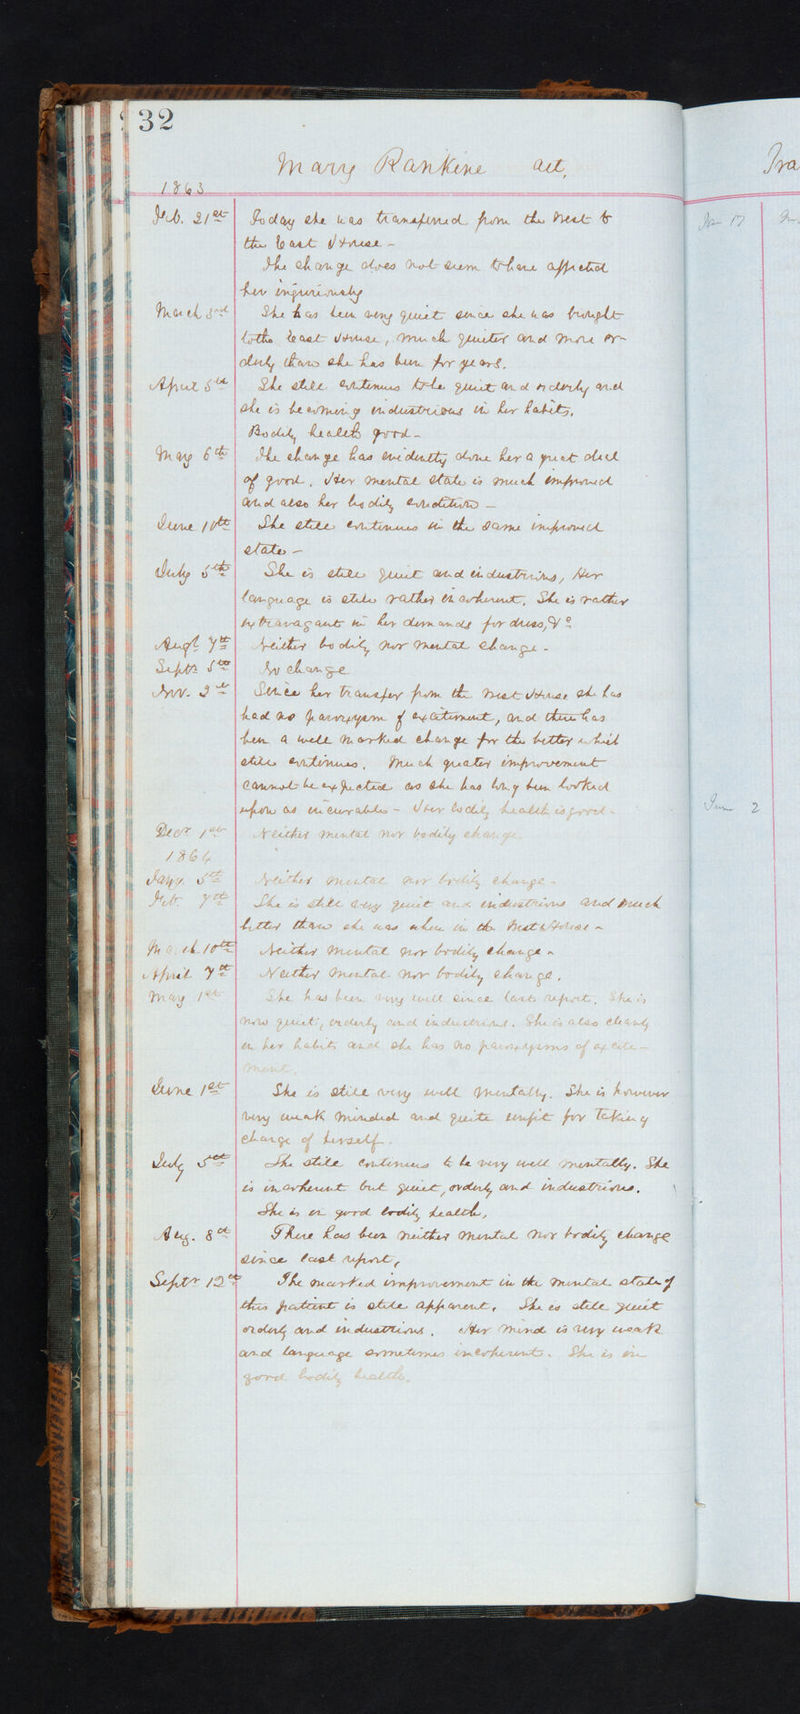 32
Mary Rankine aet.
1863
Feb. 21st Today she was transferred from the West to
the East House –
The change does not seem to have affected
her injuriously
March 3rd She has been very quiet since she was brought
to the East House, much quieter and more or-
derly than she has been for years.
April 5th She still continues to be quiet and orderly and
she is becoming industrious in her habits.
Bodily health good –
May 6th The change has evidently done her a great deal
of good. Her mental state is much improved
and also her bodily condition –
June 10th She still continues in the same improved
state –
July 5th She is still quiet and industrious, Her
language is still rather incoherent. She is rather
extravagant in her demands for dress, &c
Augt 7th Neither bodily nor mental change –
Septr 5th No change
Nov. 2d Since her transfer from the West House she has
had no paroxysm of excitement, and there has
been a well marked change for the better which
still continues. Much greater improvement
cannot be expected as she has long been looked
upon as incurable – Her bodily health is good –
Decr 1st Neither mental nor bodily change
1864
Jany. 5th Neither mental nor bodily change –
Feb. 7th She is still very quiet and industrious and much
better than she was when in the West House –
March 10th Neither mental nor bodily change –
April 7th Neither mental nor bodily change.
May 1st She has been very well since last report. She is
now quiet, orderly and industrious. She is also cleanly
in her habits and she has no paroxysms of excite-
ment.
June 1st She is still very well mentally. She is however
very weak minded and quite unfit for taking
charge of herself.
July 5th She still continues to be very well mentally. She
is incoherent but quiet, orderly and industrious.
She is in good bodily health.
Aug. 8th There has been neither mental nor bodily change
since last report,
Septr 12th The marked improvement in the mental state of
this patient is still apparent. She is still quiet
orderly and industrious. Her mind is very weak
and language sometimes incoherent. She is in
good bodily health.
17
June 2